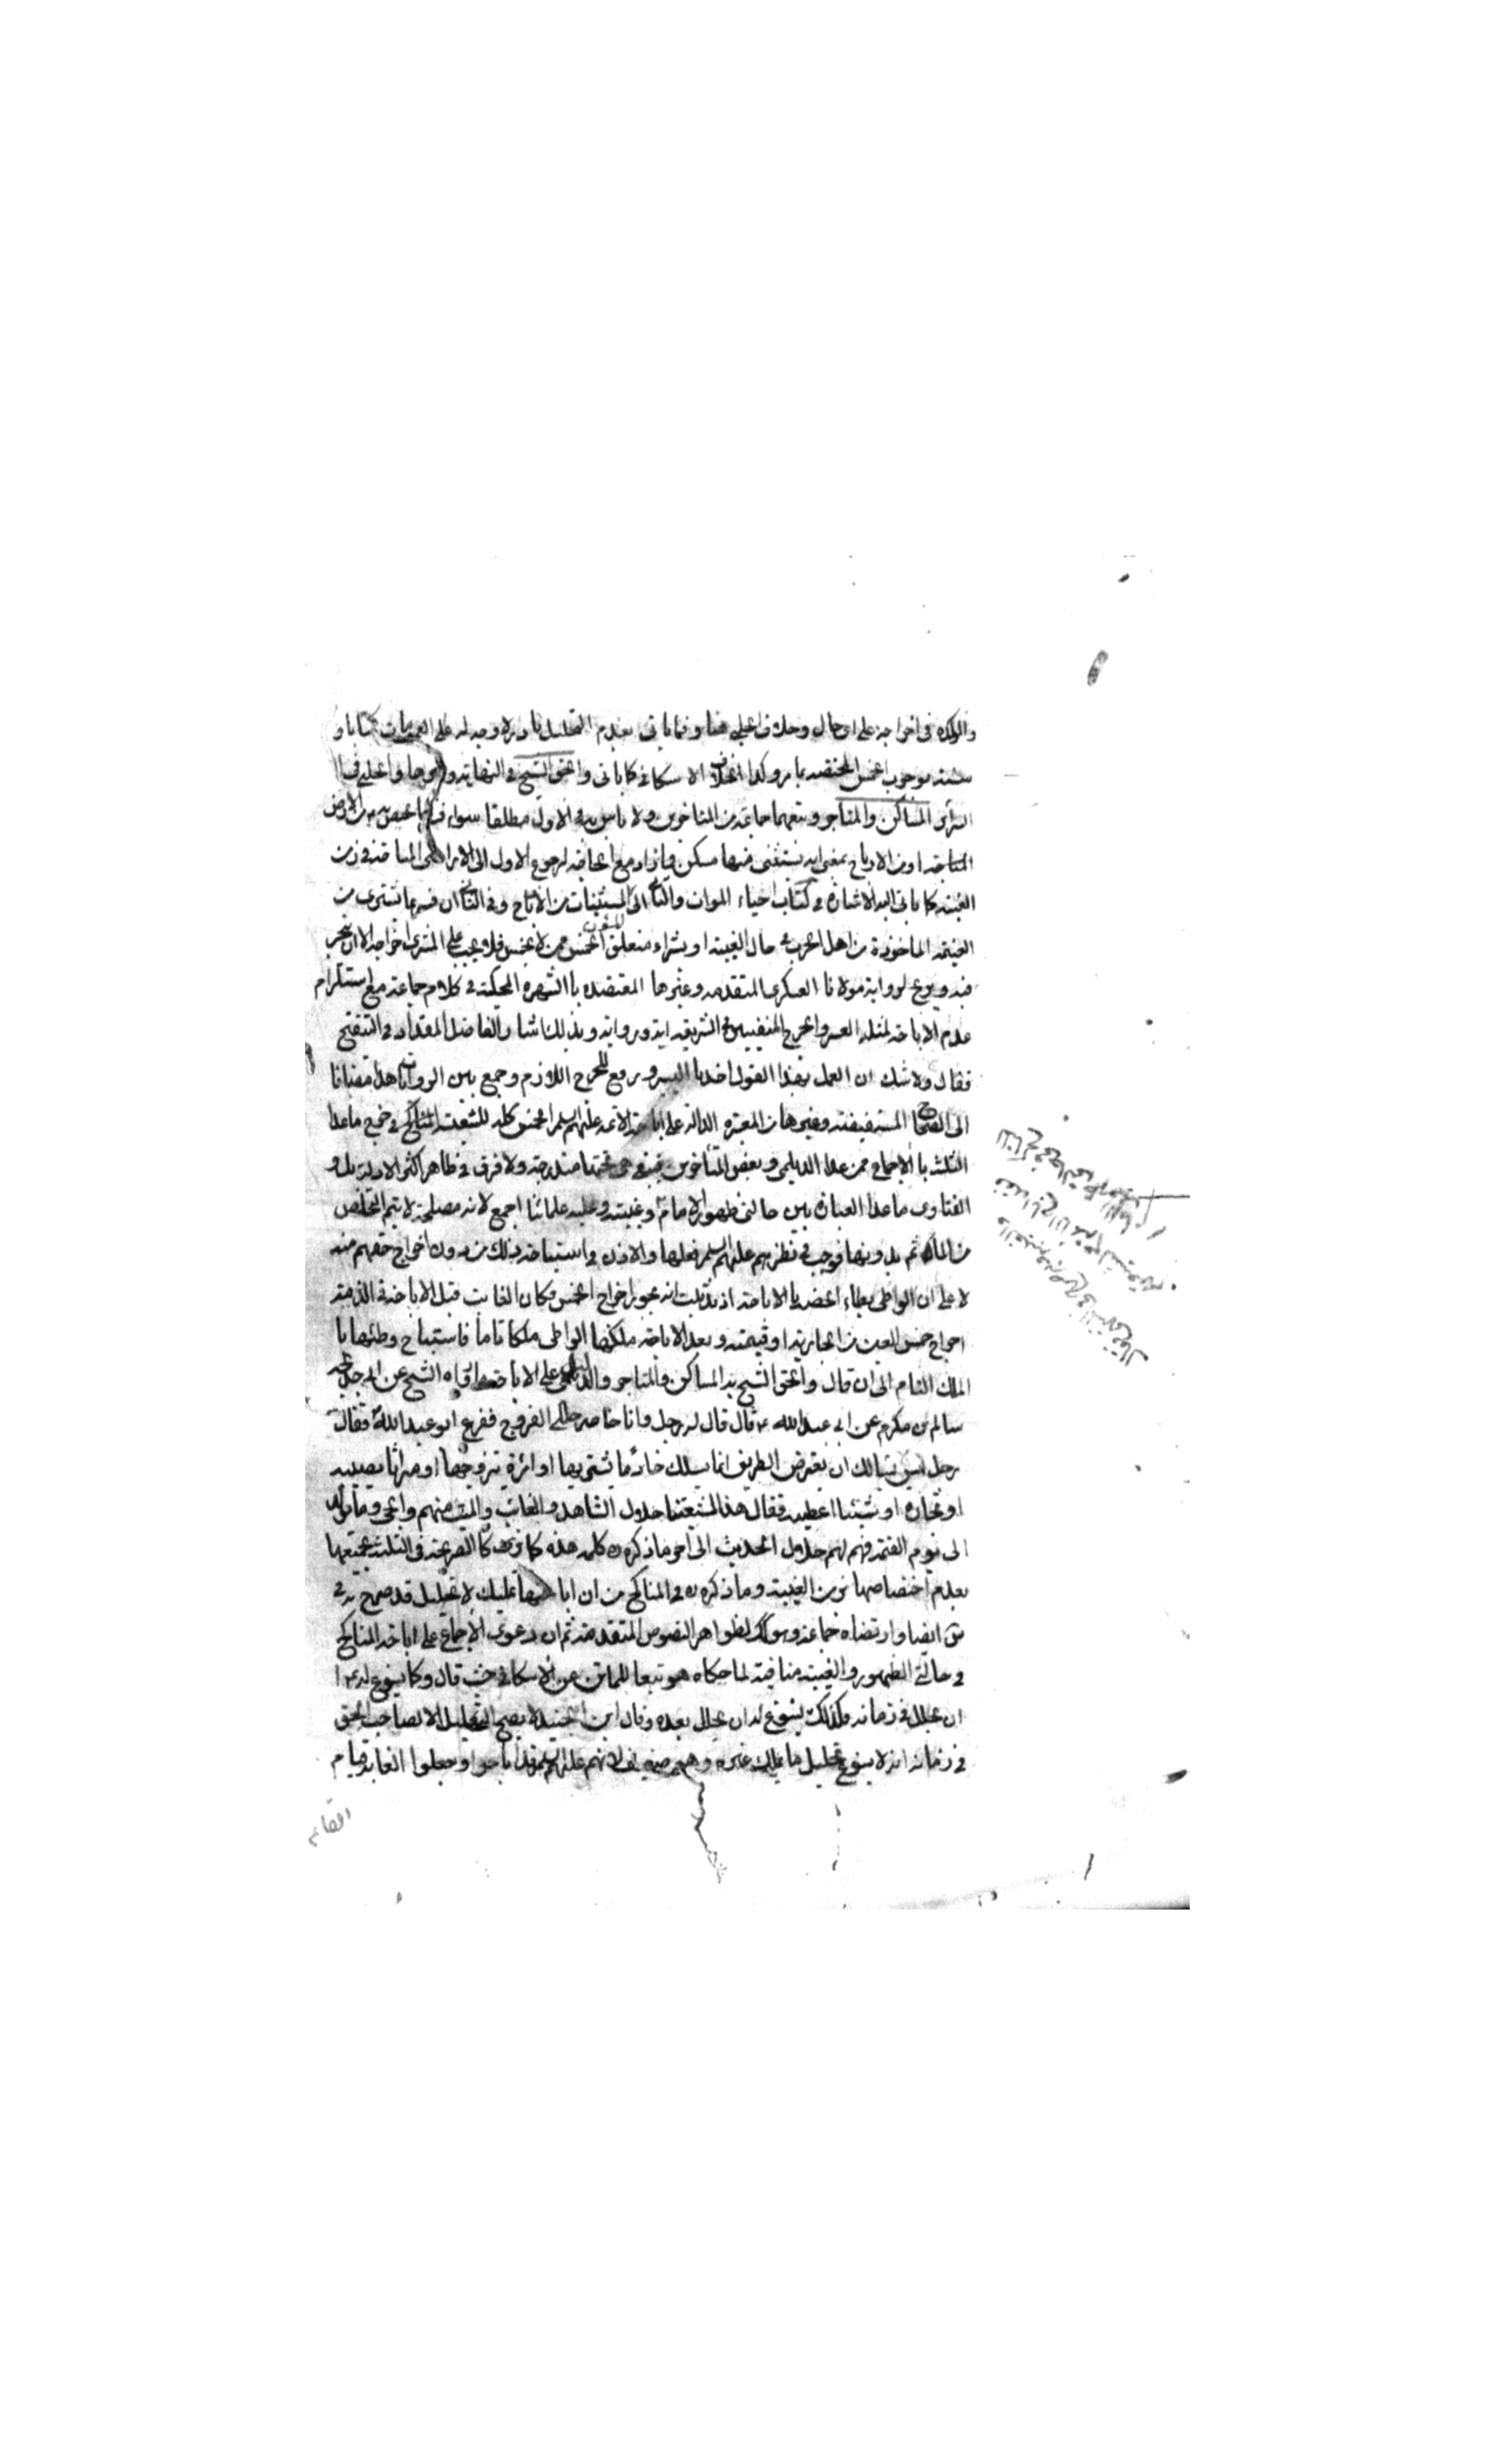 في اخراجه على اي حال وخلاف الحلبي هنا وفيما ياتي بعدم التحليل نادر لا وجه له على العمومات كتابا و
سنة بوجوب الخمس المختصة بما مر وكذا خلاف الاسكافي كما ياتي والحق الشيخ في النهاية و وغيرها والحلي في
السرائر المساكن والمتاجر وتبعهما جماعة من المتاخرين ولا باس به في الاول مطلقا سواء فسر بما يختص به من الارض
المباحة او من الارباح بمعنى انه يستثنى منها مسكن فما زاد مع الحاجة لرجوع الاول الى الاراضي المباحة في زمن
الغيبة كما ياتي اليه الاشارة في كتاب احياء الموات والثاني الى المستثنيات من الارباح وفي الثاني ان فسر بما يشترى من
الغنيمة الماخوذة من اهل الحرب في حال الغيبة او بشراء متعلق الخمس ممن لا يخمس فلا يجب على المشتري اخراجه الا ان يتجر
فيه ويربح لرواية مولانا العسكري المتقدمة وغيرها المعتضدة بالشهرة المحكية في كلام جماعة مع استلزام
عدم الاباحة لمثله العسر والحرج المنفيين في الشريعة اية ورواية وبذلك اشار الفاضل المقداد في التنقيح
فقال ولا شك ان العمل بهذا القول اخذ باليسر ورفع للحرج اللازم وجمع بين الروايات هذا مضافا
الى الصحاح المستفيضة وغيرها من المعتبرة الدالة على اباحة الائمة عليهم السلم الخمس كله للشيعة المناكح في جميع ما عدا
الثلث بالاجماع ممن عدا الديلمي وبعض المتاخرين فيبقى هي تحتها مندرجة ولا فرق في ظاهر اكثر الادلة بل و
الفتاوى ما عدا العبارة بين حالتي ظهور الامام وغيبته وعليه علمائنا اجمع لانه مصلحة لا يتم التخلص
من المآثم بدونها فوجب في نظرهم عليهم السلم فعلها والاذن في استباحة ذلك من دون اخراج حقهم منه
لا على ان الواطي يطاء الحصة بالاباحة اذ قد ثبت انه يجوز اخراج الخمس فكان الثابت قبل الاباحة في الذمة
اخراج خمس العين من الجارية او قيمته وبعد الاباحة ملكها الواطي ملكا تاما فاستباح وطئها با
الملك التام الى ان قال والحق الشيخ به المساكن والمتاجر والدليل على الاباحة ما رواه الشيخ عن ابي خديجة
سالم بن مكرم عن ابي عبد الله ع قال قال له رجل وانا حاضر حلل لي الفروج ففزع ابو عبد الله ع فقال
رجل ليس يسالك ان يعترض الطريق انما يسلك خادما يشتريها او امراة يتزوجها او ميراثا يصيبه
او تجارة او شيئا اعطيه فقال هذا لشيعتنا حلال الشاهد والغائب والميت منهم والحي وما يولد
الى يوم القيمة فهم لهم حلال الحديث الى اخر ما ذكره كلمه هذه كما ترى كالصريحة في الثلث بجميعها
بعدم اختصاصها بزمن الغيبة وما ذكره في المناكح من ان اباحتها تمليك لا تحليل قد صرح به في
س ايضا وارتضاه جماعة وهو كك لظواهر النصوص المتقدمة ثم ان دعوى الاجماع على اباحة المناكح
في حالتي الظهور والغيبة منافية لما حكاه هو تبعا للماتن عن الاسكافي حيث قال وكما يسوغ له ع ا
ان يحلل في زمانه وكذلك يسوغ له ان يحلل بعده وقال ابن الجنيد لا يصح التحليل الا لصاحب الحق
في زمانه اذ لا يسوغ تحليل ما يملك غيره وهو ضعيف لانهم عليهم السلم قد اباحوا وجعلوا الغاية قيام
القائم